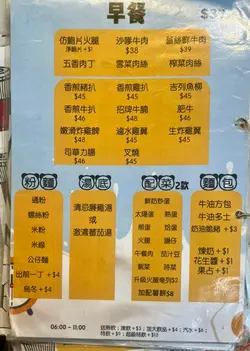 早餐
$37
仿鮑片火腿 沙嗲牛肉 薑絲鮮牛肉
淨鮑片 +$1 $38 $39
五香肉丁 雪菜肉絲 榨菜肉絲
香煎豬扒 香煎雞扒 吉列魚柳
$45 $45 $45
香煎牛扒 招牌牛腩 肥牛
$46 $48 $46
嫩滑炸雞髀 滷水雞翼 生炸雞翼
$48 $45 $45
司華力腸 叉燒
$46 $45
粉麵
通粉
螺絲粉
米粉
米線
公仔麵
出前一丁 +$4
烏冬 +$4
湯底
清忌廉雞湯
或
激濃蕃茄湯
配菜2款
鮮奶炒蛋
太陽蛋 熱蛋
煎蛋 烚蛋
火腿 腸仔
午餐肉 茄汁豆
蔬菜 時菜
加配薯餅$8
麵包
牛油方包
牛油多士
奶油脆豬 +$3
煉奶 +$1
花生醬 +$1
果占 +$1
06:00 - 11:00
送熱飲：凍飲 +$3；汽水 +$4；
特飲 +$9；超級特飲 +$13